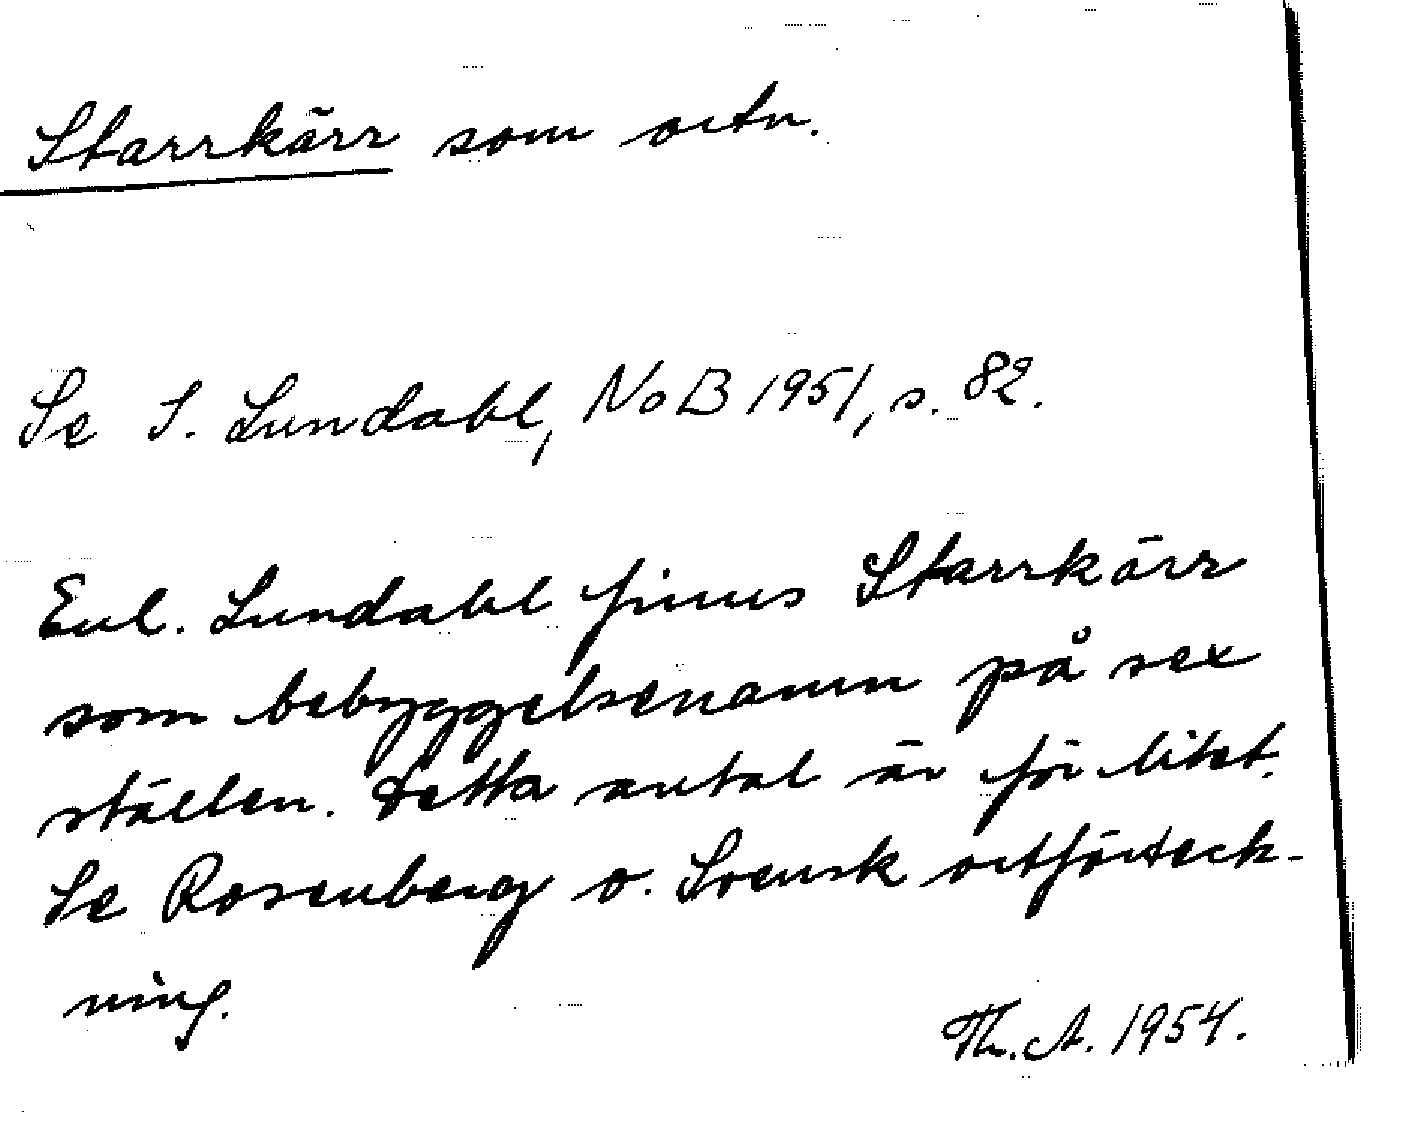 Starrkärr som ortn.
Se I. Lundahl, NoB 1951, s. 82.
Enl. Lundahl finns Starrkärr
som bebyggelsenamn på sex
ställen. Detta antal är för litet.
Se Rosenberg o. Svensk ortförteck-
ning.
Th. A. 1954.